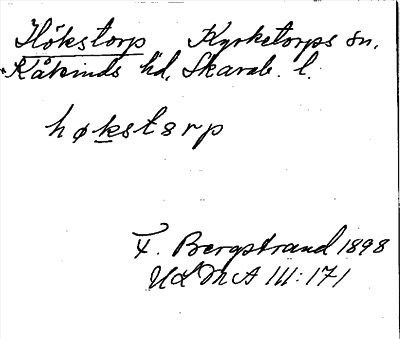 Hökstorp Kyrketorps sn.
Kåkinds hd. Skarab. l.
høkstorp
F. Bergstrand 1898
ULMA III:171